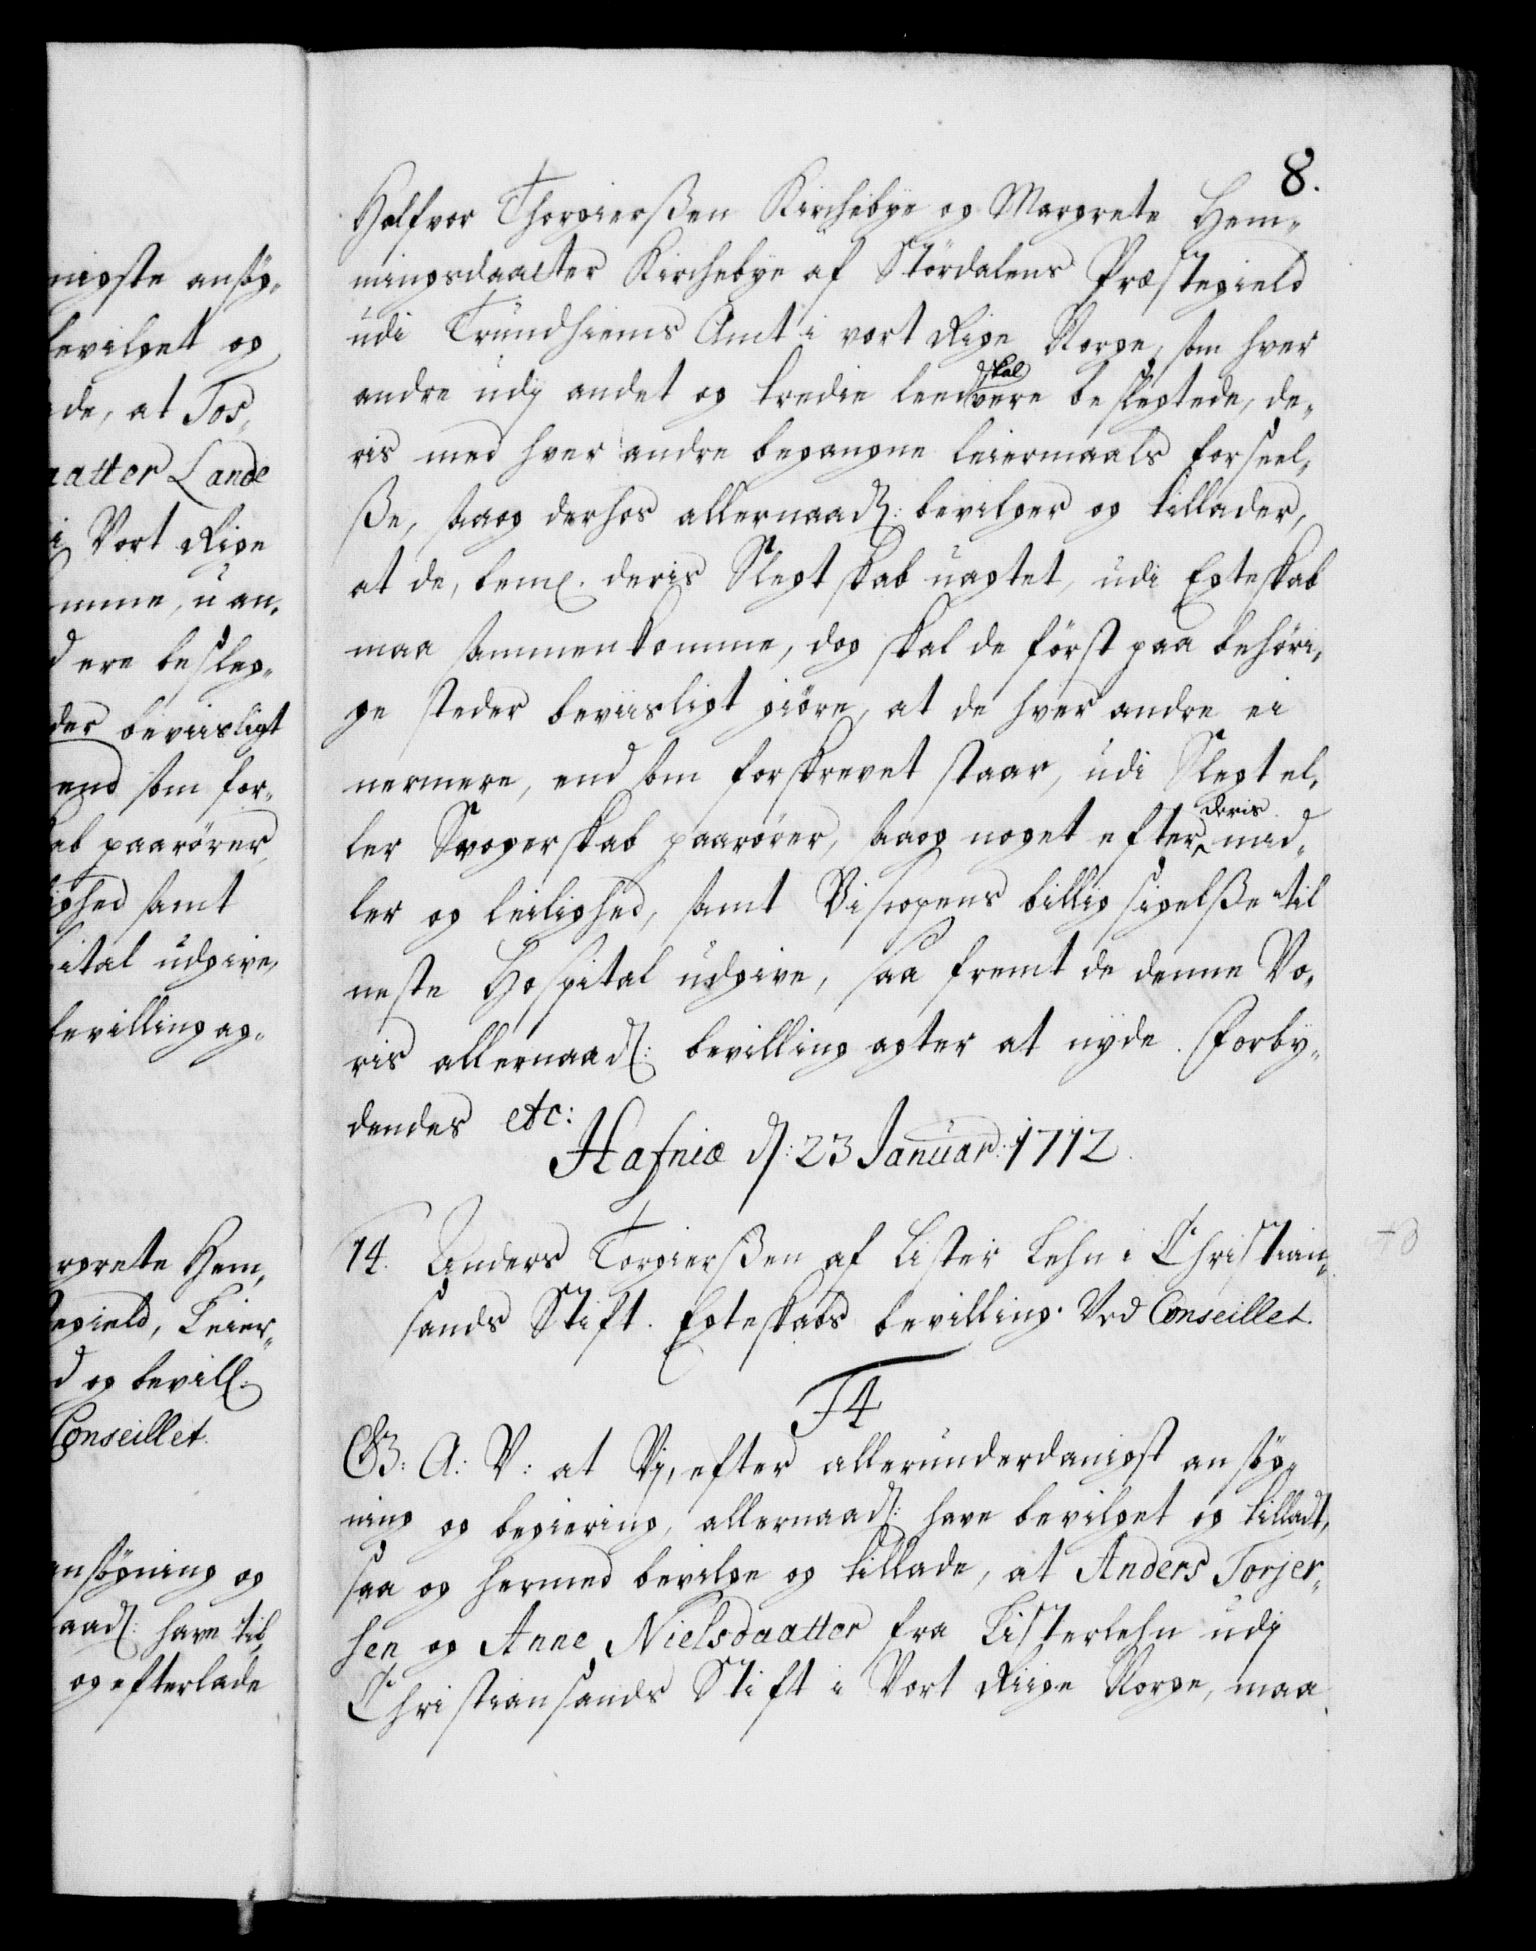 nigste ansøg-
bevilget og
de, at Tos,
aatter Lande
i Vort Rige
mme, uan-
d ere besleg-
der beviisligt
end som for-
ab paarører,
ighed samt
ital udgive,
bevilling ag-
rgrete Hem-
egield, Leier-
d og bevill:
Conseillet.
nsøgning og
aad: have til-
og efterlade
8.
Halfvor Thorgierßen Kirchebye og Margrete Hem-
mingsdaatter Kirchebye af Størdalens Præstegield
udi Trundhiems Amt i vort Rige Norge, som hver
andre udj andet og tredie leed skal være beslegtede, de-
ris med hver andre begangne leiermaals forseel-
ße, saa og derhos allernaad: bevilger og tillader,
at de, bem: deris Slegtskab uagtet, udi Egteskab
maa sammenkomme, dog skal de først paa behøri-
ge steder beviisligt giøre, at de hver andre ei
nermere, end som forskrevet staar, udi Slegt el-
ler Svogerskab paarører, saa og noget efter deris mid-
ler og leilighed, samt Biscopens billig sigelße til
neste Hospital udgive, saa fremt de denne Vo-
ris allernaad: bevilling agter at nyde. Forby-
dendes etc:
Hafniæ d: 23 Januar: 1712.
14. Anders Torgierßen af Lister Lehn i Christian-
sands Stift. Egteskabs bevilling. Ved Conseillet.
F4
G: A: V: at Vj, efter allerunderdanigst ansøg-
ning og begiering, allernaad: have bevilget og tilladt,
saa og hermed bevilge og tillade, at Anders Torjer-
sen og Anne Nielsdaatter fra Listerlehn udj
Christiansands Stift i Vort Riige Norge, maa